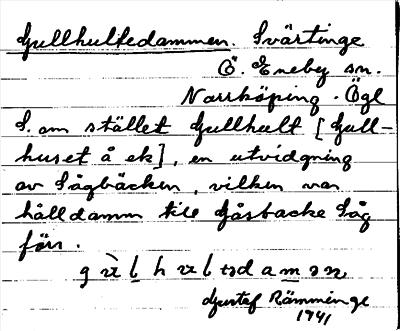 Gullhultedammen. Svärtinge
Ö. Eneby sn.
Norrköping. Ögl
S. om stället Gullhult [Gull-
huset å ek], en utvidgning
av Sågbäcken, vilken var
hålldamm till Gåsbacke Såg
förr.
Gustaf Rämminge
1941